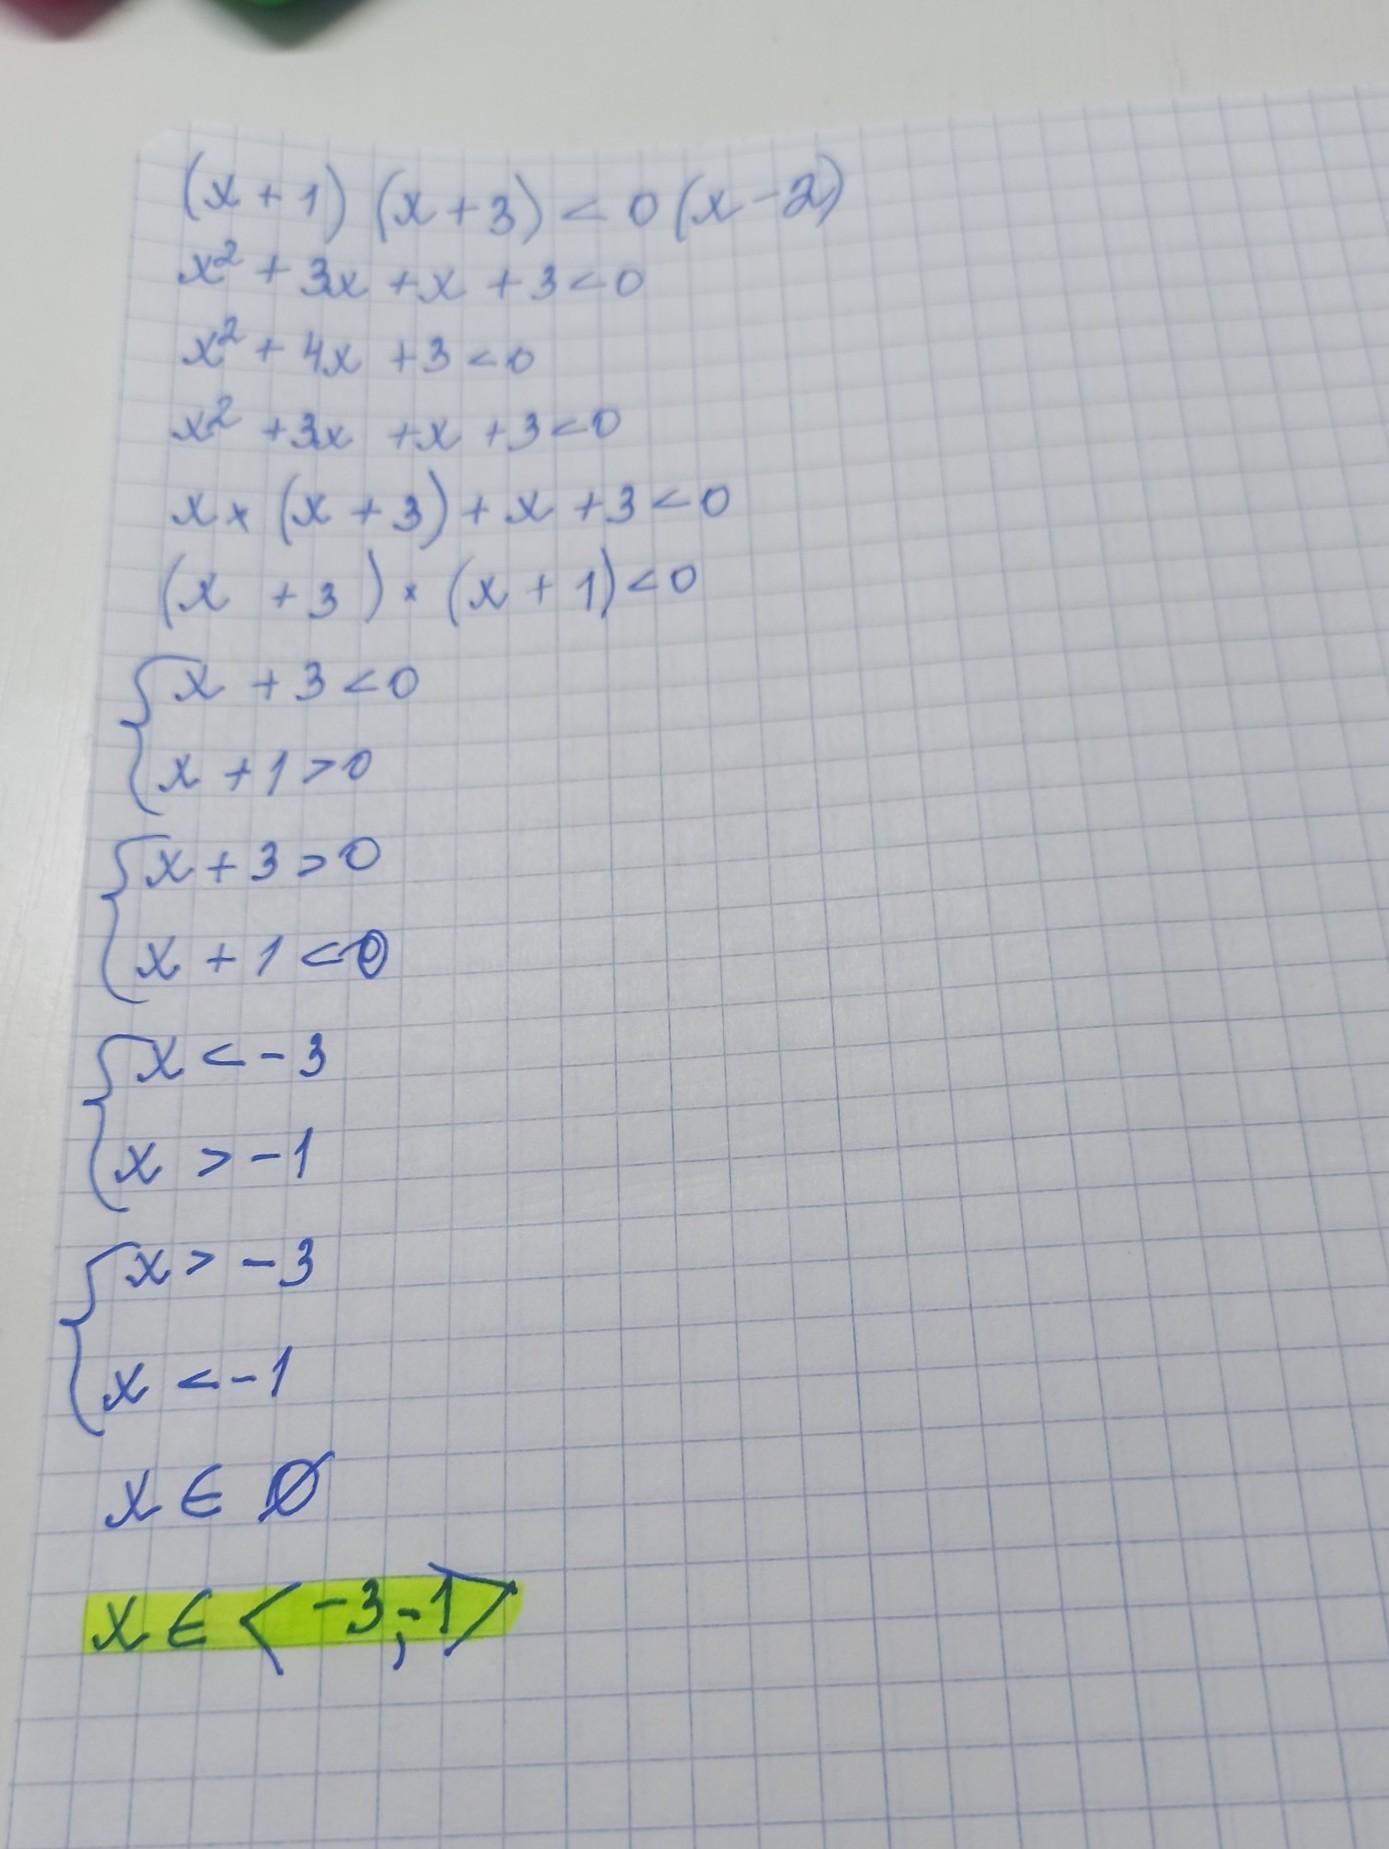 (x + 1) (x + 3) < 0 (x - 2)
x² + 3x + x + 3 < 0
x² + 4x + 3 < 0
x² + 3x + x + 3 < 0
x × (x + 3) + x + 3 < 0
(x + 3) × (x + 1) < 0
{ x + 3 < 0
x + 1 > 0
{ x + 3 > 0
x + 1 < 0
{ x < -3
x > -1
{ x > -3
x < -1
x ∈ Ø
x ∈ ⟨-3, -1⟩